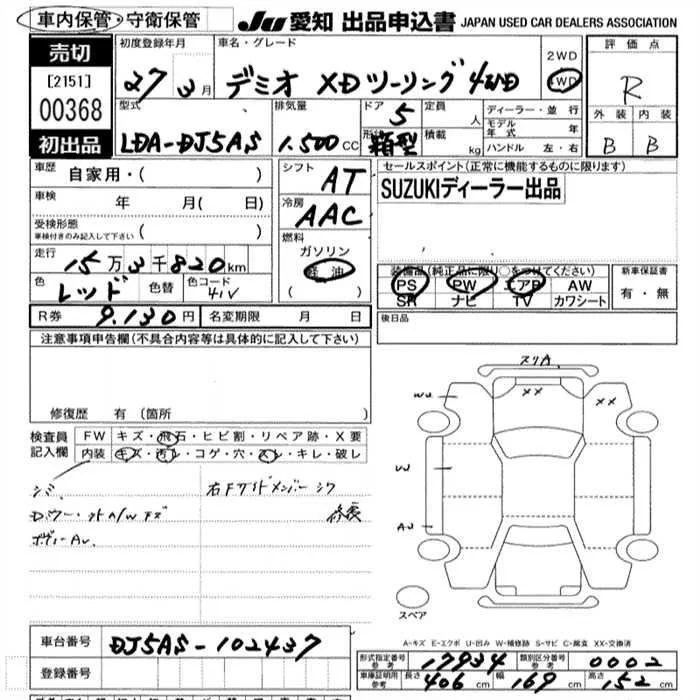 車内保管・守衛保管 JU 愛知 出品申込書 JAPAN USED CAR DEALERS ASSOCIATION
売切
[2151]
00368
初出品
初度登録年月
27 3月
車名・グレード
デミオ XDツーリング 4WD
2WD
4WD
評価点
R
外装 内装
B B
型式
LDA-DJ5AS
排気量
1.500cc
ドア 5
形状 箱型
定員 人
積載 kg
ディーラー・並行
モデル年式 年
ハンドル 左・右
車歴
自家用・( )
車検
年 月( 日)
受検形態
車検付きのみ記入して下さい( )
走行
15万3千820km
色
レッド
色替
色コード
41V
シフト
AT
冷房
AAC
燃料
ガソリン
軽油
( )
セールスポイント(正常に機能するものに限ります)
SUZUKIディーラー出品
装備品(純正品に限り○をつけてください)
PS PW エアB AW
SR ナビ TV カワシート
新車保証書
有・無
R券 9.130円 名変期限 月 日
後日品
注意事項申告欄(不具合内容等は具体的に記入して下さい)
修復歴 有(箇所
検査員
記入欄
FW キズ・飛石・ヒビ割・リペア跡・X要
内装 キズ・汚レ・コゲ・穴・スレ・キレ・破レ
シミ
右Fサイドメンバーシワ
修復
ボディーAU
スリA
XX
XX
WU
W
AU
スペア
A-キズ E-エクボ U-凹み W-補修跡 S-サビ C-腐食 XX-交換済
車台番号 DJ5AS-102437
登録番号
形式指定番号
参考
17934
類別区分番号
参考
0002
車庫証明用
参考
長さ 406cm 幅 169cm 高さ 152cm